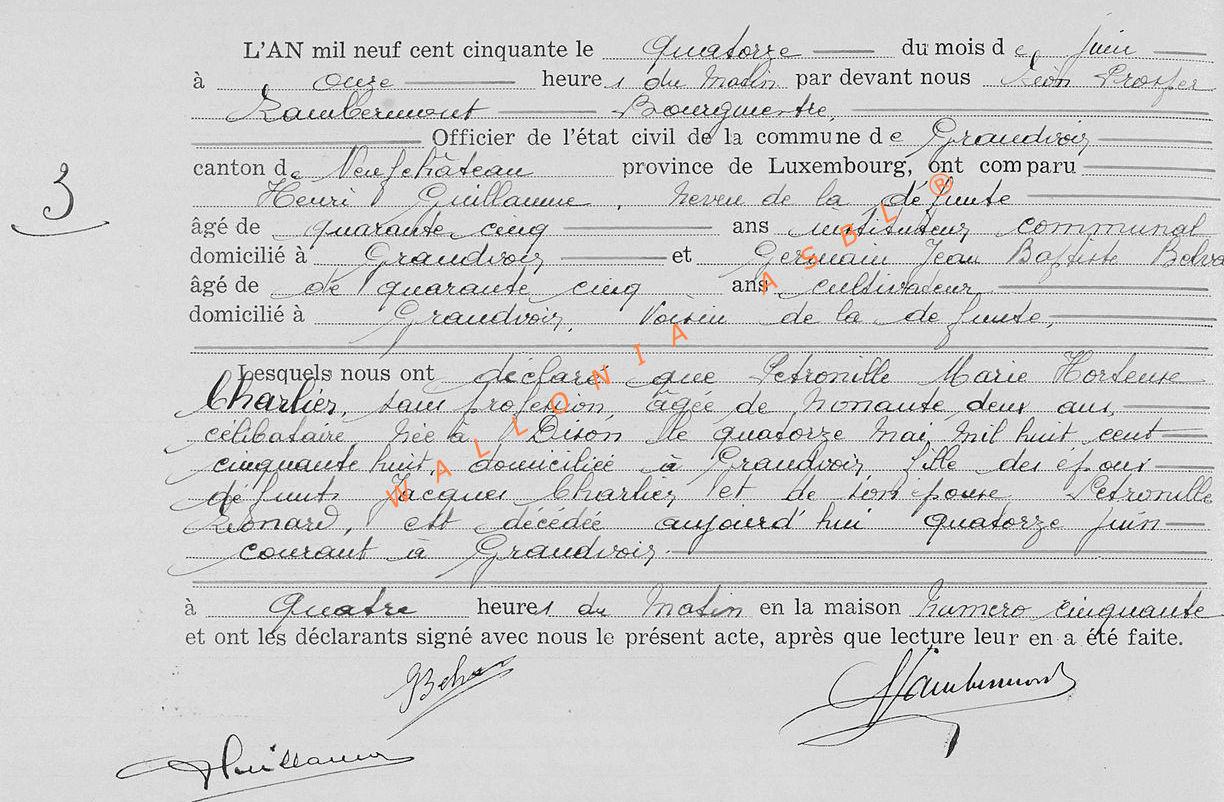 L'AN mil neuf cent cinquante le quatorze du mois de juin
à onze heures du Matin par devant nous Léon Prosper
Lambermont Bourgmestre,
Officier de l'état civil de la commune de Grandvoir
3
canton de Neufchâteau province de Luxembourg, ont comparu
Henri Guillaume, neveu de la défunte
âgé de quarante cinq ans instituteur communal
domicilié à Grandvoir et Germain Jean Baptiste
âgé de de quarante cinq ans cultivateur
domicilié à Grandvoir, Voisin de la defunte,
Lesquels nous ont déclaré que Petronille Marie Hortense
Charlier, sans profession, âgée de nonante deux ans,
célibataire, née à Dison le quatorze Mai mil huit cent
cinquante huit, domiciliée à Grandvoir fille des époux
défunts Jacques Charlier et de son épouse Petronille
Léonard, est décédée aujourd'hui quatorze juin
courant à Grandvoir.
à Quatre heures du Matin en la maison numero cinquante
et ont les déclarants signé avec nous le présent acte, après que lecture leur en a été faite.
Lambermont
Guillaume
WALLONIA ASBL ®